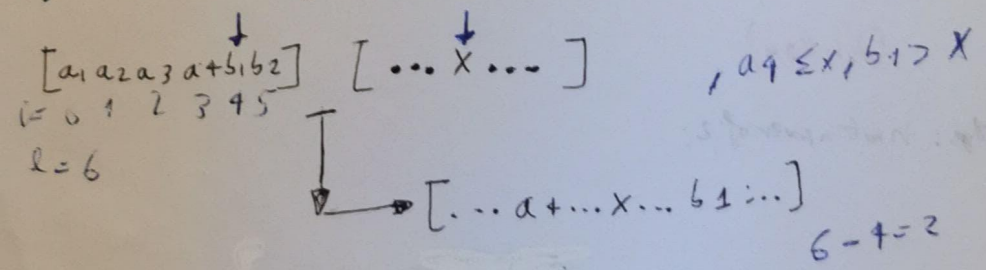 [a1 a2 a3 a4 b1 b2] [... x ...] , a4 ≤ x, b1 > x
i= 0 1 2 3 4 5
l = 6
[... a4 ... x ... b1 ...]
6 - 4 = 2